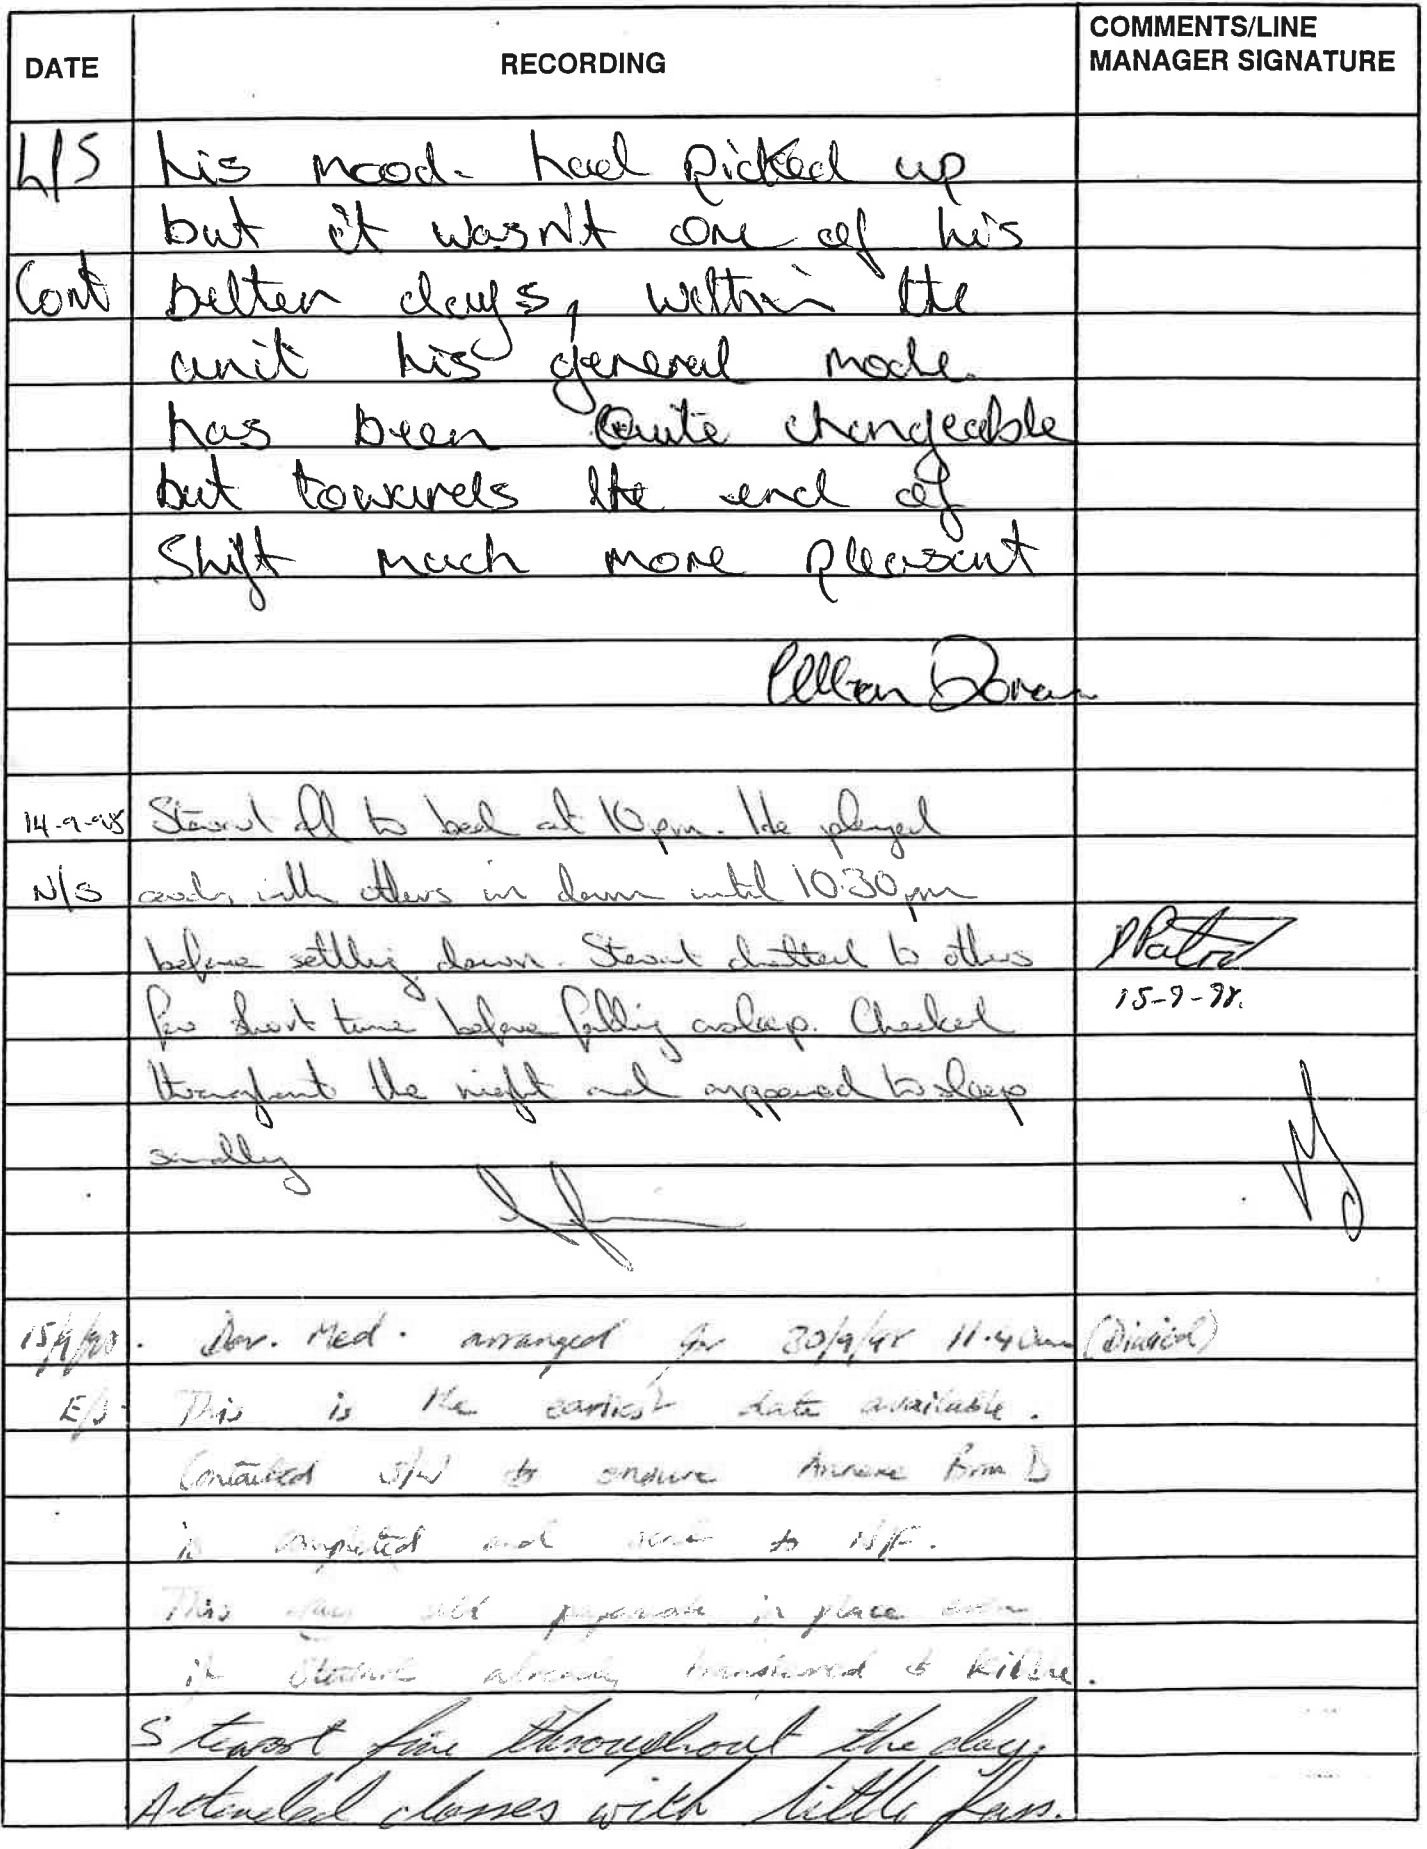 DATE RECORDING COMMENTS/LINE
MANAGER SIGNATURE
L/S his mood had picked up
but it wasn't one of his
Cont better days, within the
unit his general mode
has been Quite changeable
but towards the end of
Shift much more pleasant
Doran
14-9-98 Stewart off to bed at 10pm. He played
N/S cards with others in dorm until 10.30pm
before settling down. Stewart chatted to others
15-9-98.
for short time before falling asleep. Checked
throughout the night and appeared to sleep
soundly
15/9/98. Dov. Med. arranged for 30/9/98 11.40am
E/S This is the earliest date available.
Contacted S/W to ensure Annexe Form D
is completed and sent to N/F.
This way all paperwork in place even
if Stewart already transferred to
Stewart fine throughout the day.
Attended classes with little fuss.